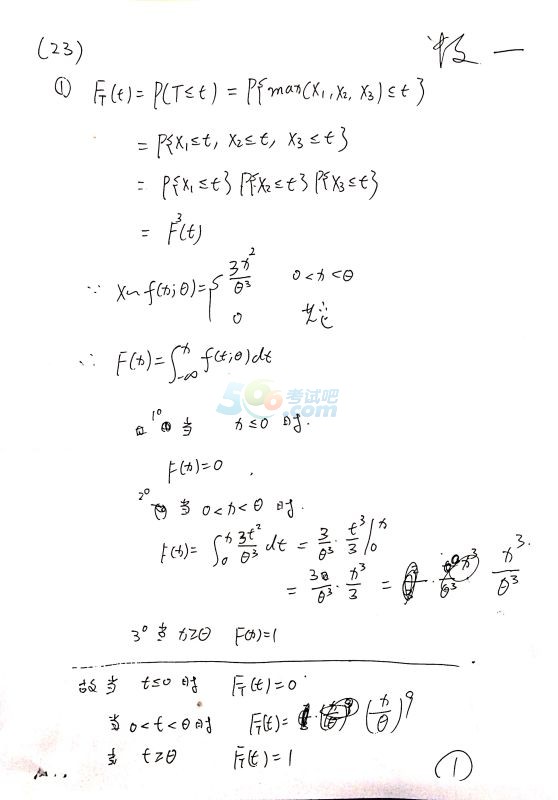 (23) 数一
① F_T(t) = P(T≤t) = P{max(X₁, X₂, X₃) ≤ t}
= P{X₁≤t, X₂≤t, X₃≤t}
= P{X₁≤t} P{X₂≤t} P{X₃≤t}
= F³(t)
∵ X~f(x;θ) = { 3x²/θ³ 0<x<θ
0 其它
∴ F(x) = ∫_{-∞}^{x} f(t;θ)dt
506 考试吧 .com
1° 当 x≤0 时.
F(x)=0 .
2° 当 0<x<θ 时.
F(x) = ∫_0^x 3t²/θ³ dt = 3/θ³ · t³/3 |_0^x
= 3/θ³ · x³/3 = x³/θ³ .
3° 当 x≥θ F(x)=1
故当 t≤0 时 F_T(t)=0
当 0<t<θ 时 F_T(t)= (x/θ)⁹
当 t≥θ F_T(t)=1
①